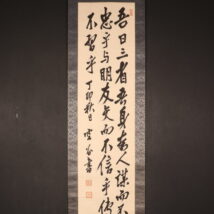 吾日三省吾身為人謀而不
忠乎与朋友交而不信乎傳
不習乎 丁卯秋日